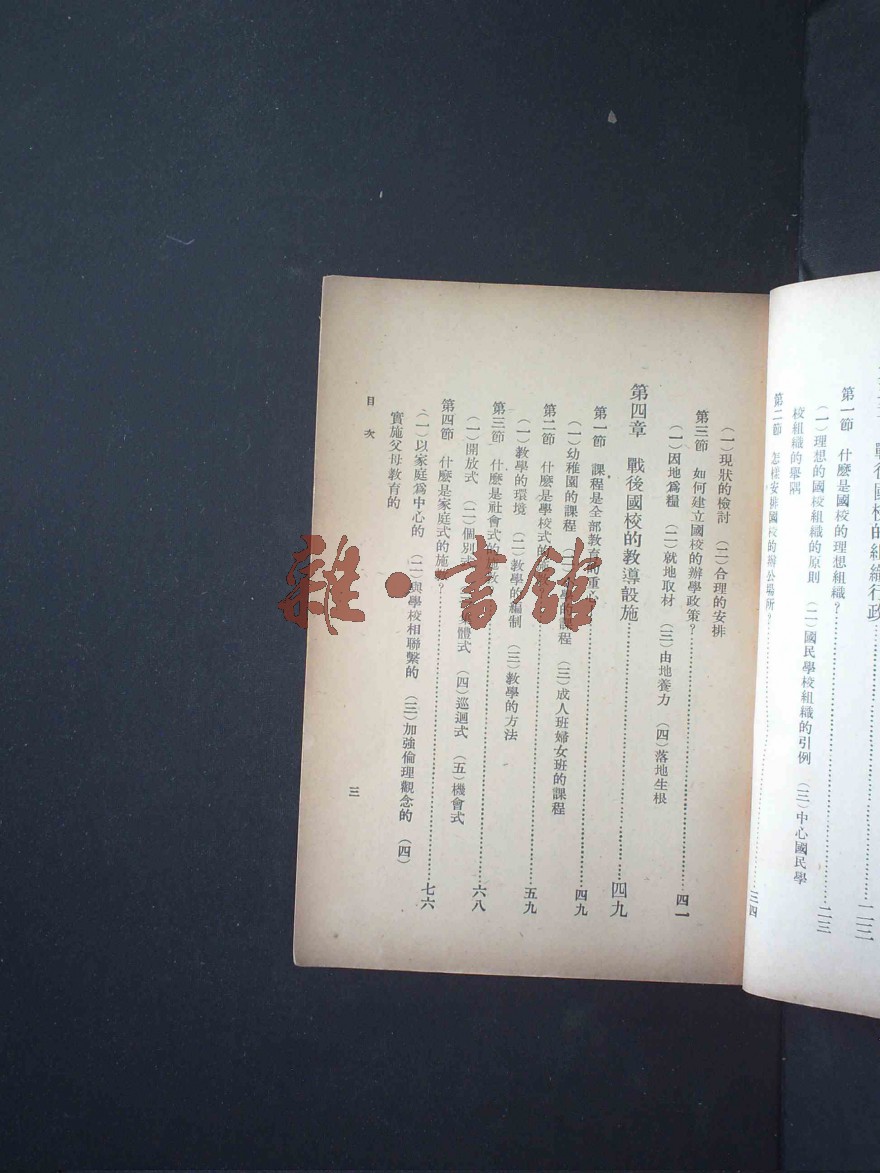 戰後國校的組織行政……二二
第一節 什麽是國校的理想組織?……二三
(一)理想的國校組織的原則 (二)國民學校組織的引例 (三)中心國民學
校組織的舉隅
第二節 怎樣安排國校的辦公場所?……三四
(一)現狀的檢討 (二)合理的安排
第三節 如何建立國校的辦學政策?……四一
(一)因地爲糧 (二)就地取材 (三)由地養力 (四)落地生根
第四章 戰後國校的教導設施……四九
第一節 課程是全部教育的重心……四九
(一)幼稚園的課程 學的課程 (三)成人班婦女班的課程
第二節 什麽是學校式的……五九
(一)教學的環境 (二)教學的編制 (三)教學的方法
第三節 什麽是社會式的施教……六八
(一)開放式 (二)個別式 集體式 (四)巡迴式 (五)機會式
第四節 什麽是家庭式的施教?……七六
(一)以家庭爲中心的 (二)與學校相聯繫的 (三)加強倫理觀念的 (四)
實施父母教育的
目次
三
雜·書館